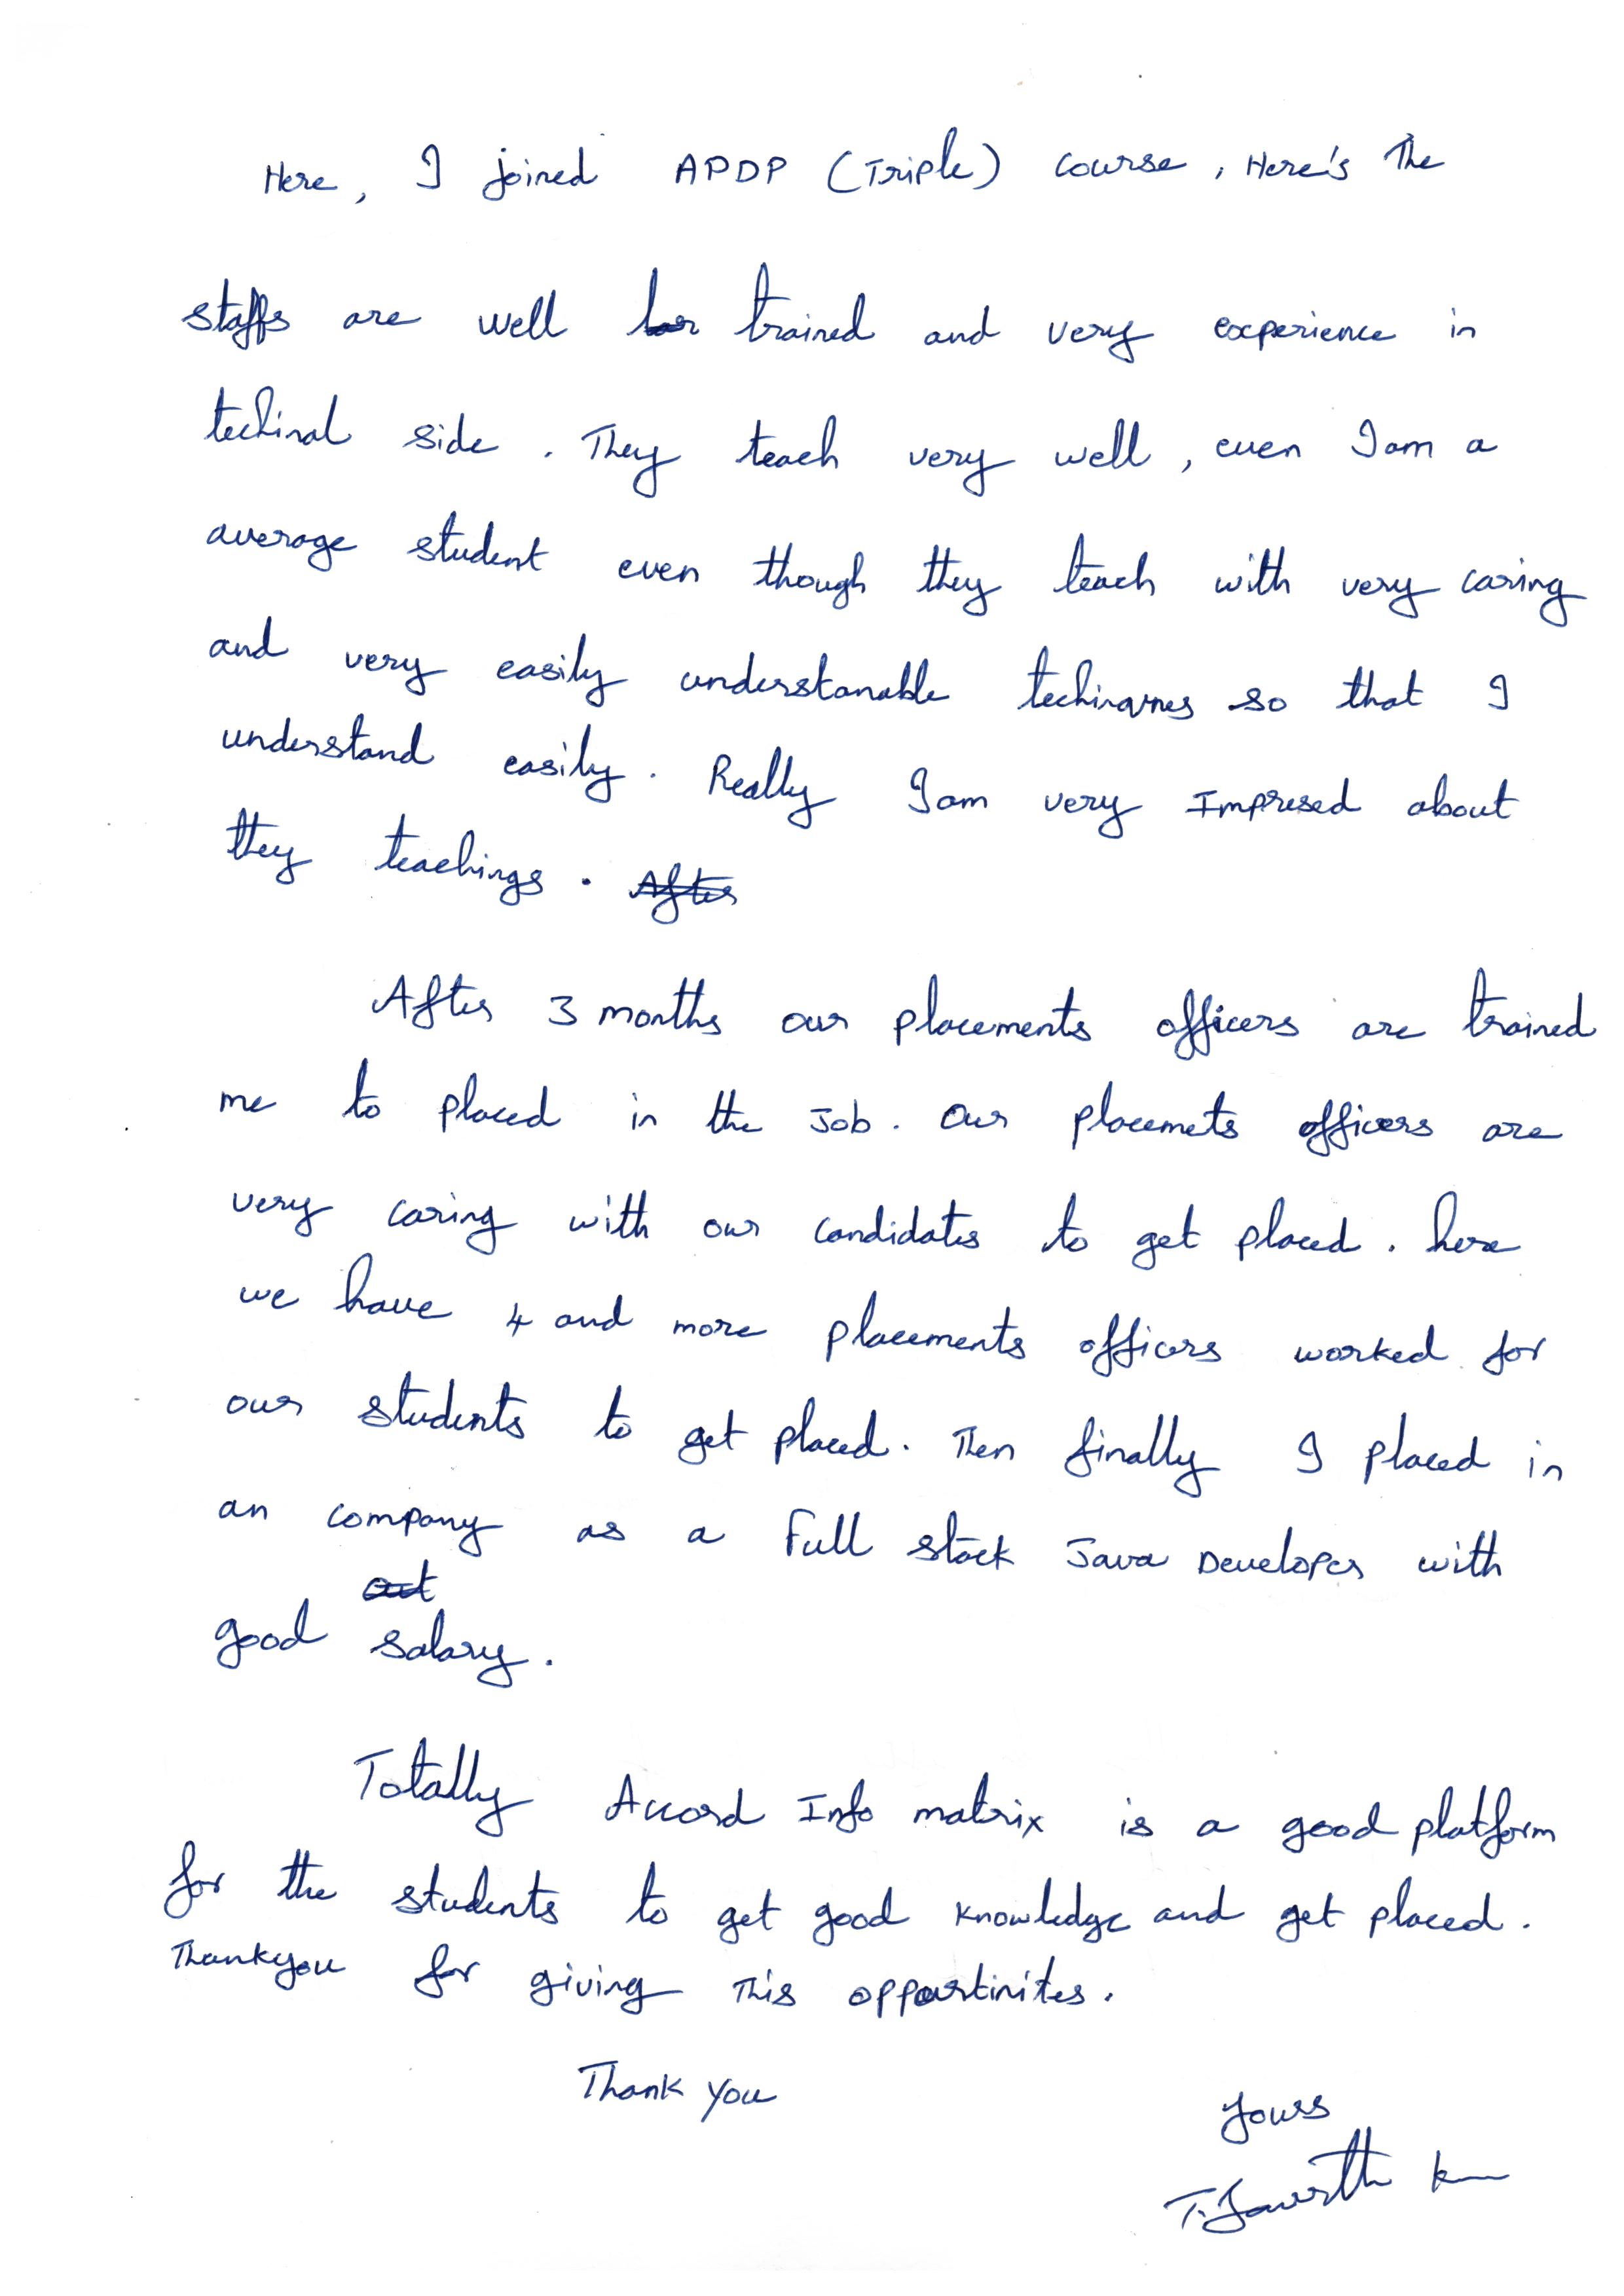 Here, I joined APDP (Triple) course, Here's the
staffs are well trained and very experience in
techinal side. They teach very well, even I am a
average student even though they teach with very caring
and very easily understanable techinques so that I
understand easily. Really I am very Impresed about
they teachings. After
After 3 months our placements officers are trained
me to placed in the Job. Our placemets officers are
very caring with our candidates to get placed. here
we have 4 and more placements officers worked for
our students to get placed. Then finally I placed in
an company as a Full stack Java Developer with
out
good salary.
Totally Accord Info matrix is a good platform
for the students to get good knowledge and get placed.
Thankyou for giving This oppartinites.
Thank you
Yours